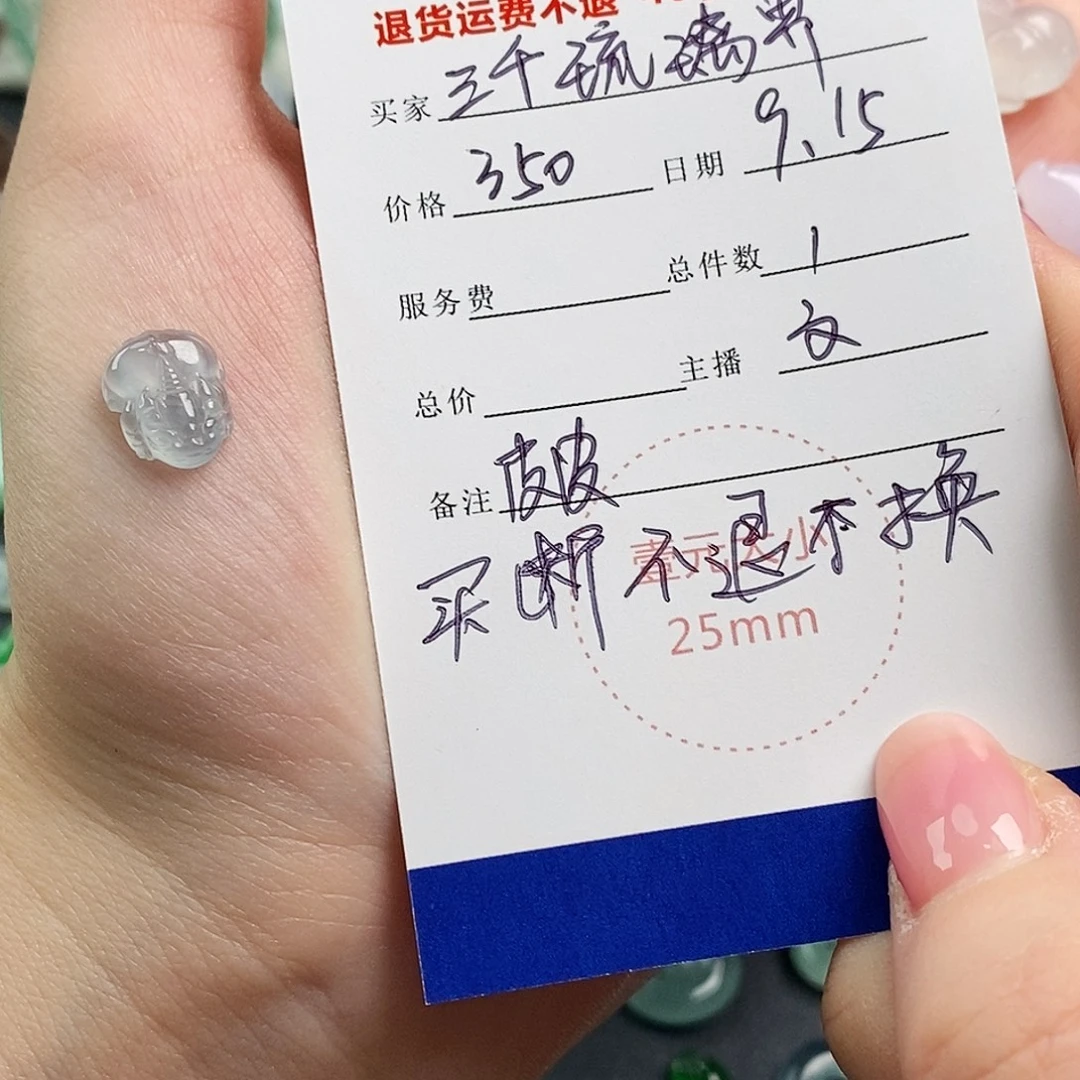 退货运费不退
买家 三千琉璃界
价格 350 日期 9.15
服务费 总件数 1
总价 主播 文
备注 皮皮
买断不退不换
壹元大小
25mm